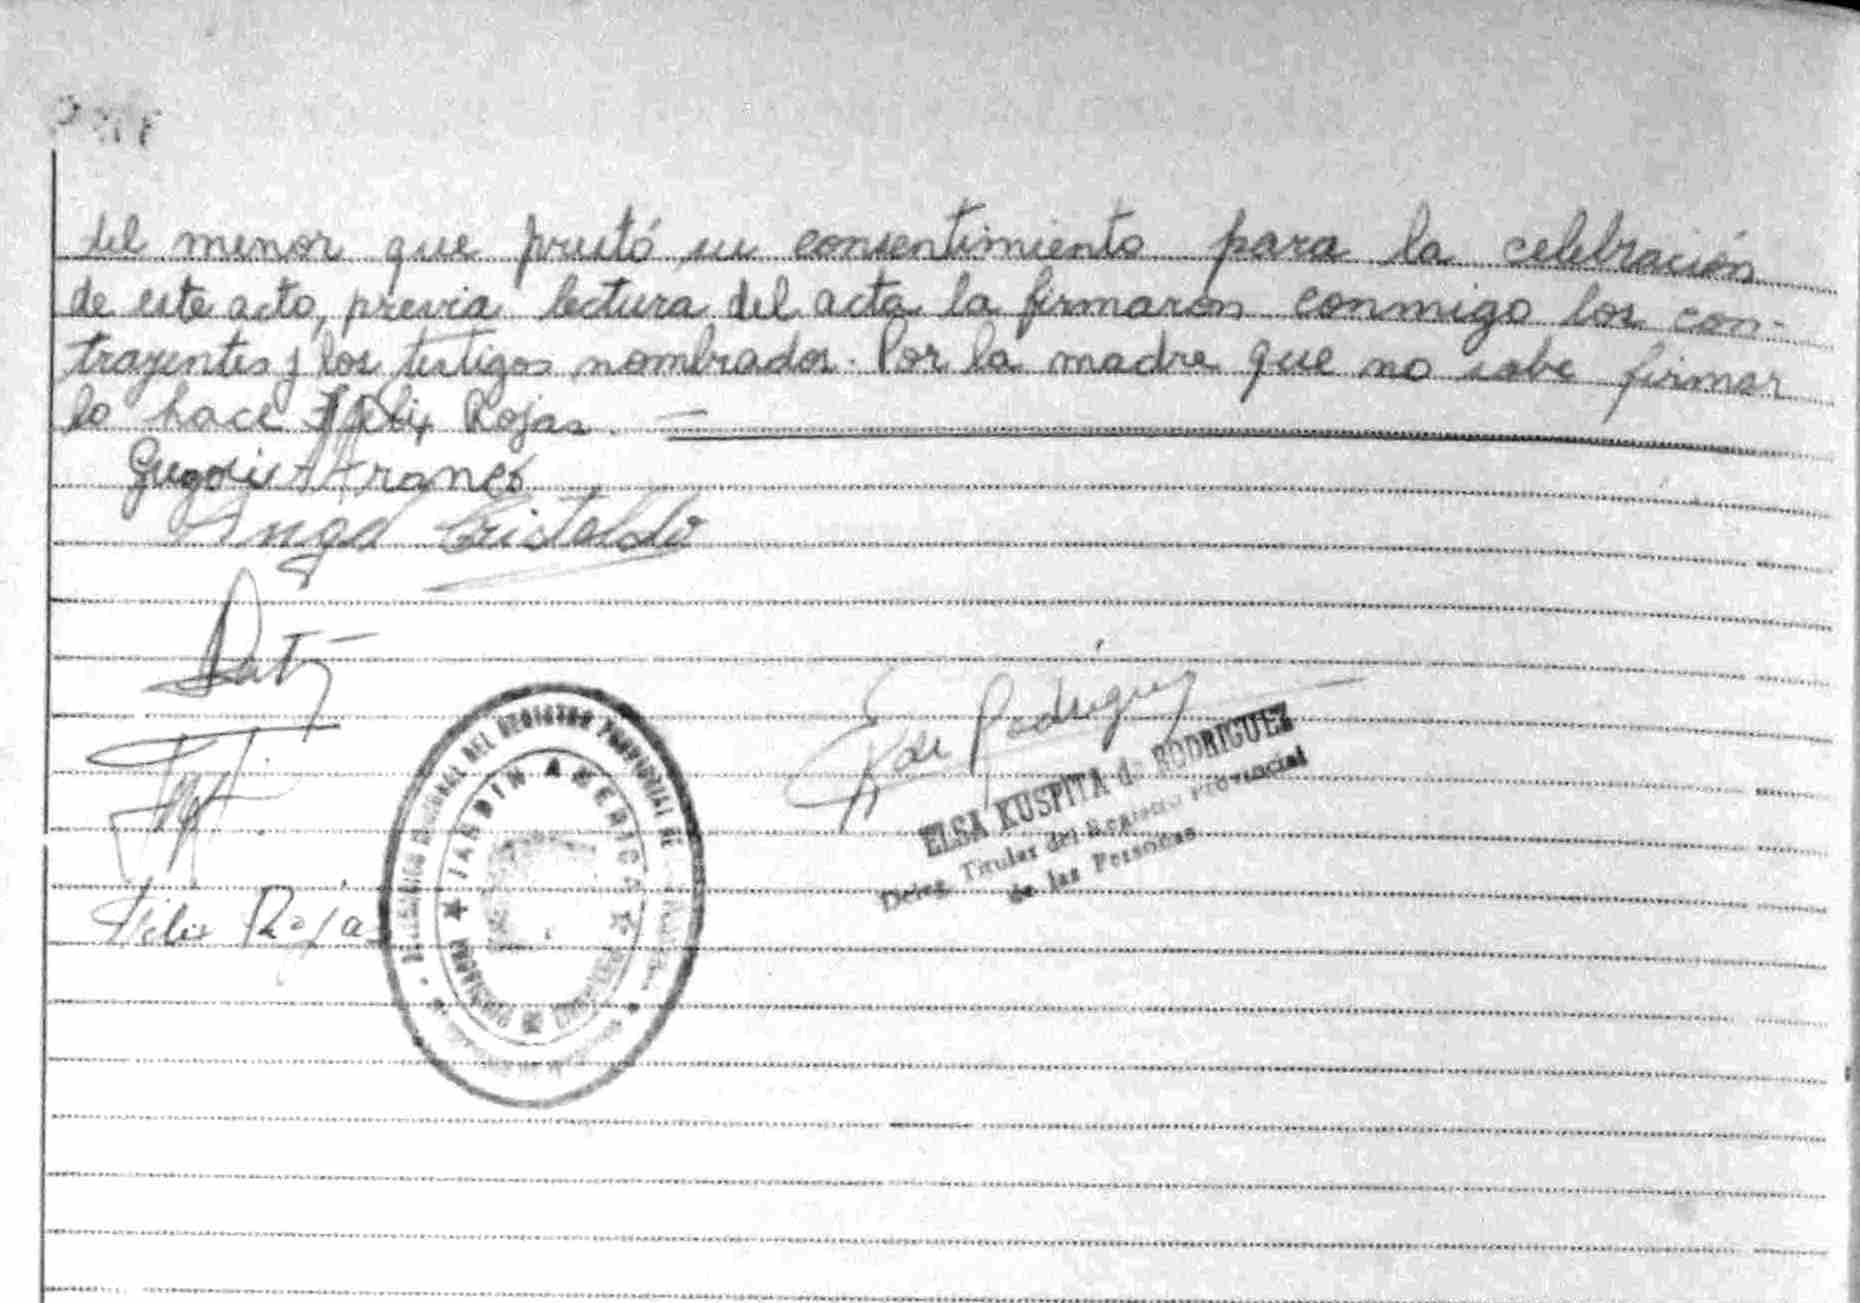 del menor que prestó su consentimiento para la celebración
de este acto, previa lectura del acta la firmaron conmigo los con-
trayentes y los testigos nombrados. Por la madre que no sabe firmar
lo hace Felix Rojas.
Angel Cristaldo
E K de Rodriguez
ELSA KUSPITA de RODRIGUEZ
Deleg. Titular del Registro Provincial
de las Personas
Felix Rojas
REGISTRO PROVINCIAL DE
JARDIN AMERICA